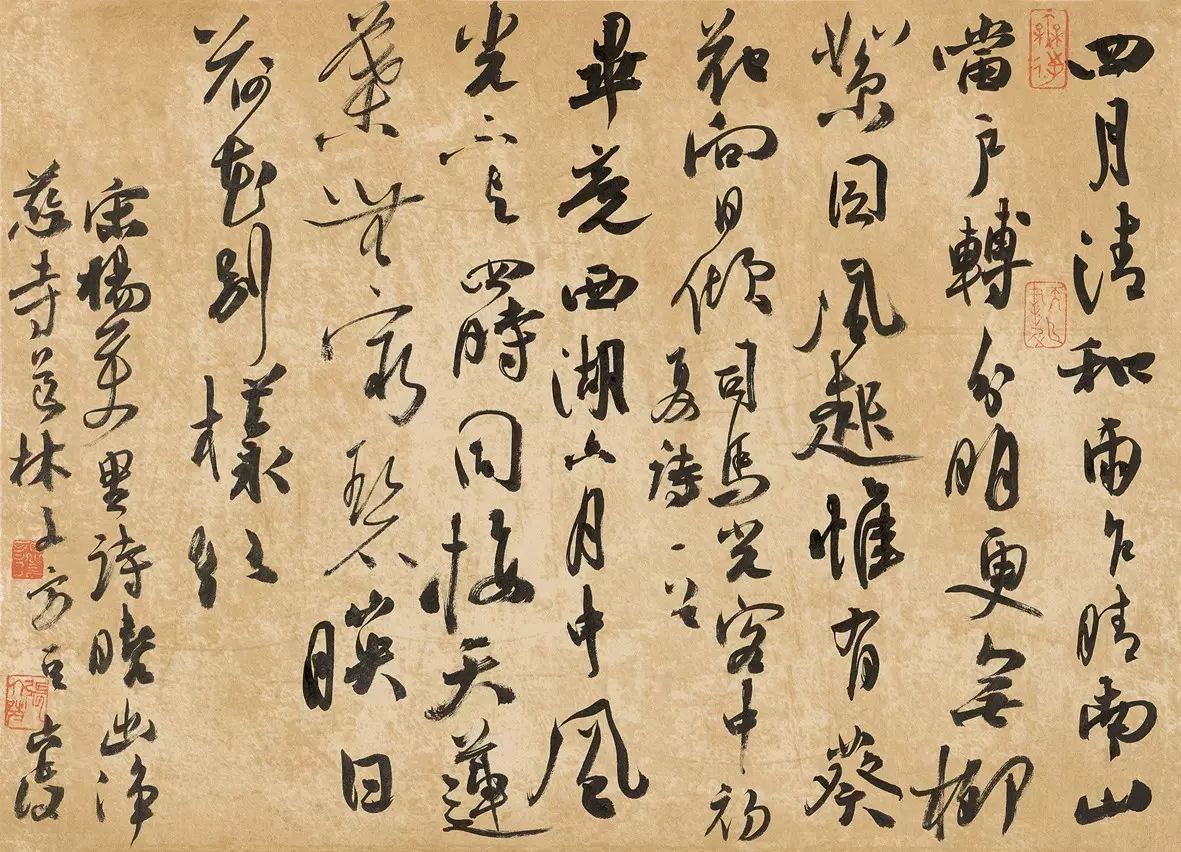 四月清和雨乍晴南山
當戶轉分明更無柳
絮因風起惟有葵
花向日傾
司馬光客中初
夏詩一首
畢竟西湖六月中風
光不與四時同接天蓮
葉無窮碧映日
荷花別樣紅
宋楊萬里詩曉出淨
慈寺送林子方